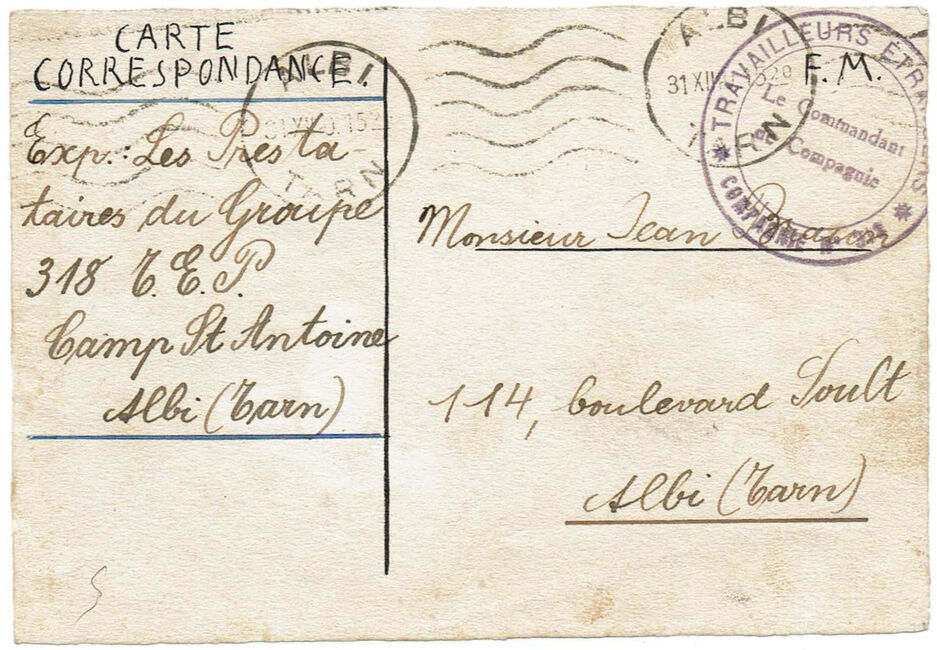 CARTE
CORRESPONDANCE.
Exp.: Les Presta-
taires du Groupe
318 T.E.P
Camp St Antoine
Albi (Tarn)
ALBI
TARN
ALBI
31 XII
TARN
F.M.
TRAVAILLEURS ÉTRANGERS
Le Commandant
Compagnie
COMPAGNIE N°
Monsieur Jean
114, boulevard Soult
Albi (Tarn)